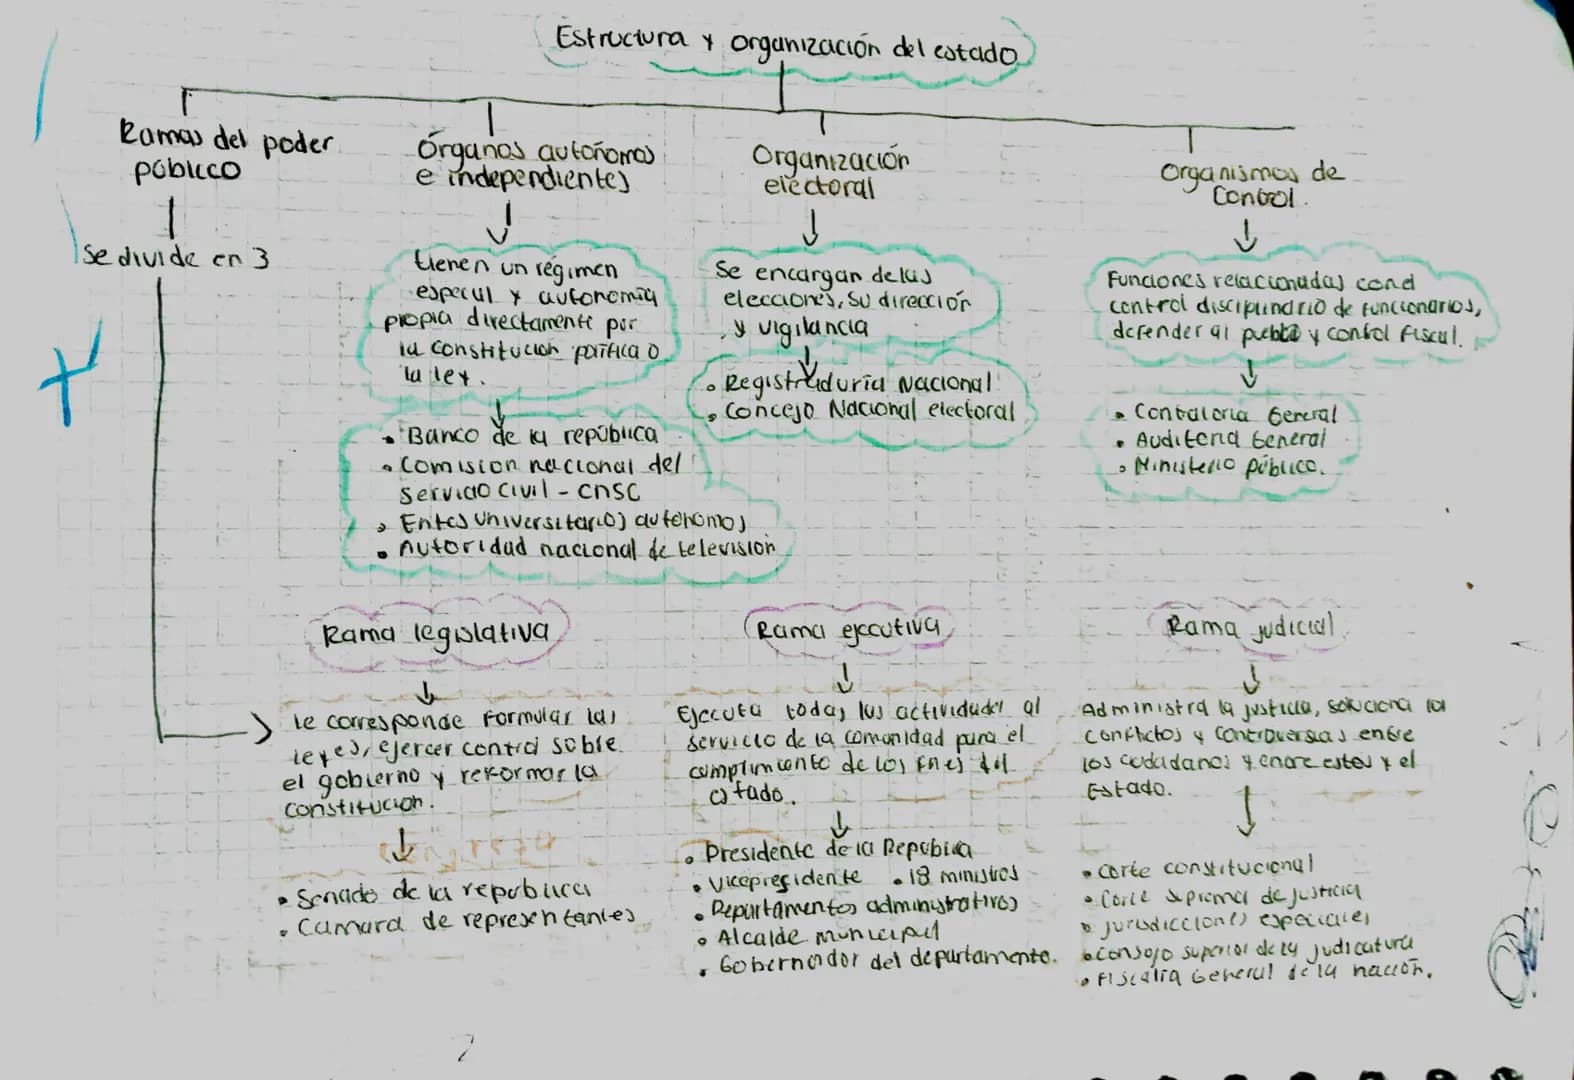 Estructura y organización del estado
Ramas del poder
público
Se divide en 3
Órganos autoñomos
e independientes
tienen un régimen
especial y autonomía
propia directamente por
la constitución política o
la ley.
• Banco de la república
• Comision nacional del
servicio civil - CNSC
• Entes universitarios autónomos
• Autoridad nacional de television
Organización
electoral
Se encargan de las
elecciones, su dirección
y vigilancia
• Registraduría Nacional
• Concejo Nacional electoral
Organismos de
Control.
Funciones relacionadas con el
control disciplinario de funcionarios,
defender al pueblo y control fiscal.
• Contraloria General
• Auditoria General
• Ministerio público.
Rama legislativa
le corresponde formular las
leyes, ejercer control sobre
el gobierno y reformar la
constitucion.
• Senado de la republica
• Camara de representantes
Rama ejecutiva
Ejecuta todas las actividades al
servicio de la comunidad para el
cumplimiento de los fines del
estado.
• Presidente de la Republica
• Vicepresidente • 18 ministros
• Departamentos administrativos
• Alcalde municipal
• Gobernador del departamento.
Rama judicial
Administra la justicia, soluciona los
conflictos y controversias entre
los ciudadanos y entre estos y el
Estado.
• Corte constitucional
• Corte suprema de justicia
• jurisdicciones especiales
• consejo superior de la judicatura
• Fiscalía General de la nación.